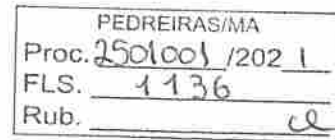 PEDREIRAS/MA
Proc. 2501001 /2021
FLS. 1136
Rub.